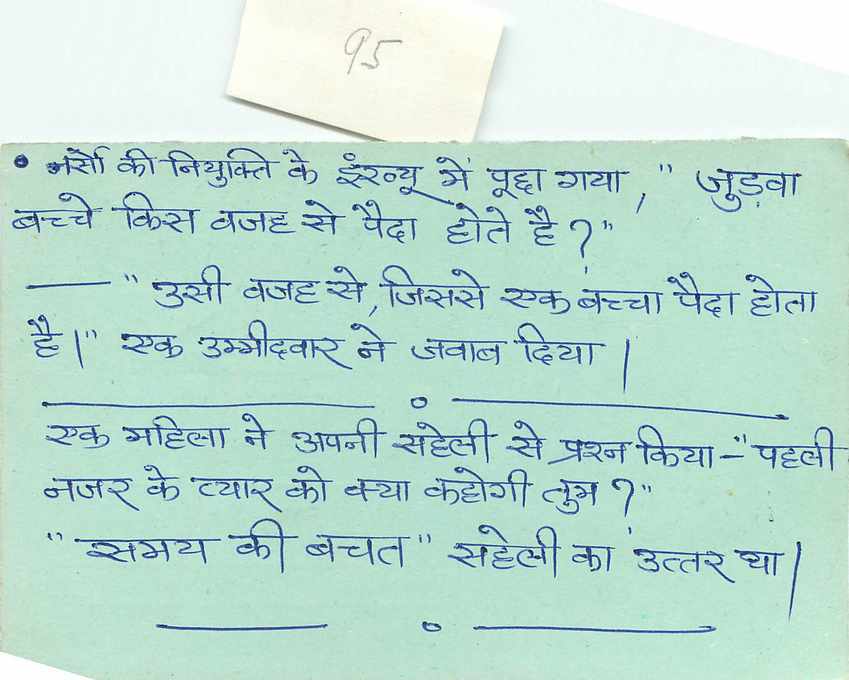 95
• नर्सो की नियुक्ति के इंरव्यू में पूछा गया, " जुड़वा
बच्चे किस वजह से पैदा होते है ? "
—— " उसी वजह से, जिससे एक बच्चा पैदा होता
है।" एक उम्मीदवार ने जवाब दिया।
एक महिला ने अपनी सहेली से प्रश्न किया - " पहली
नजर के प्यार को क्या कहोगी तुम ? "
" समय की बचत " सहेली का उत्तर था।